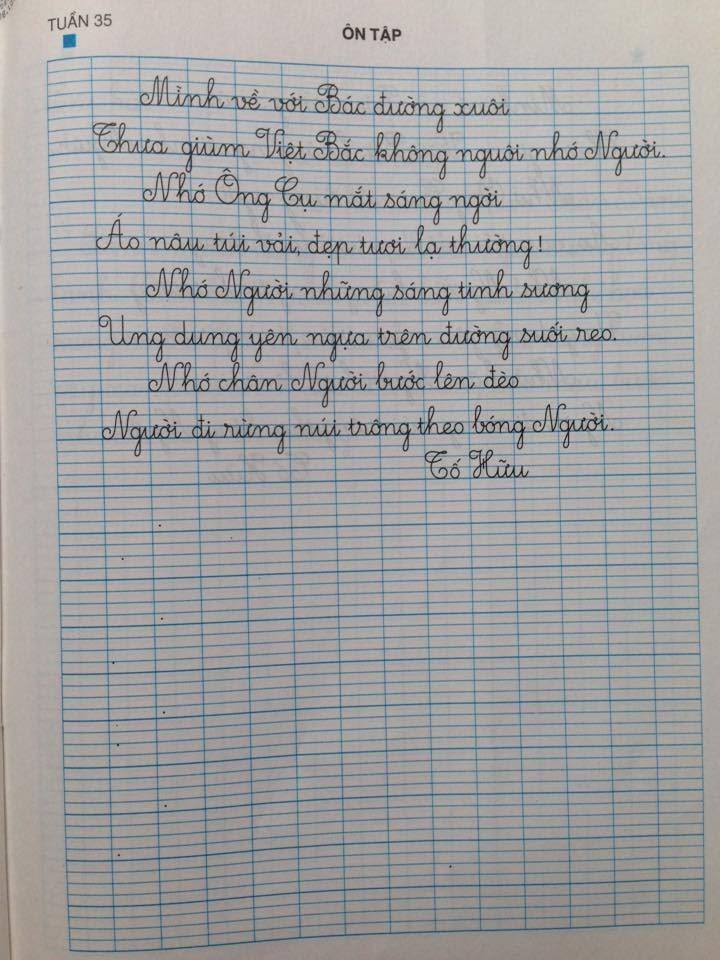 TUẦN 35
ÔN TẬP
Mình về với Bác đường xuôi
Thưa giùm Việt Bắc không nguôi nhớ Người.
Nhớ Ông Cụ mắt sáng ngời
Áo nâu túi vải, đẹp tươi lạ thường!
Nhớ Người những sáng tinh sương
Ung dung yên ngựa trên đường suối reo.
Nhớ chân Người bước lên đèo
Người đi rừng núi trông theo bóng Người.
Tố Hữu